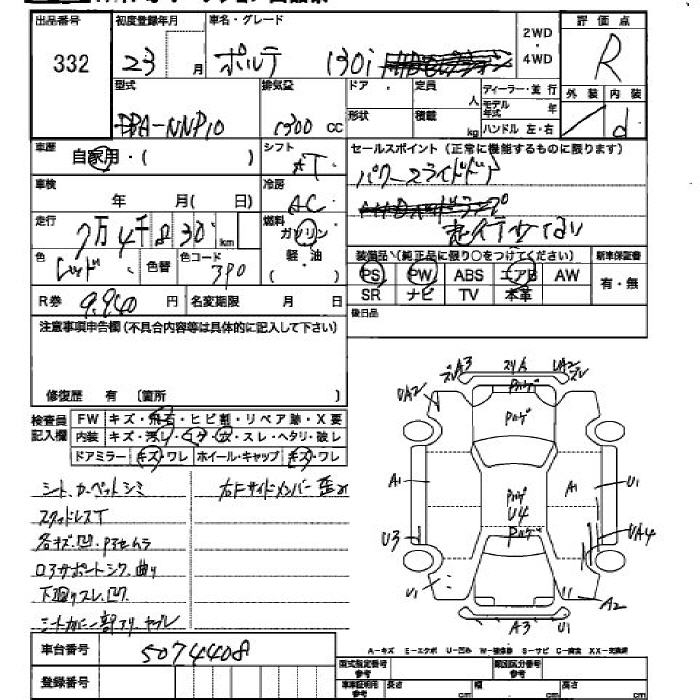 出品番号 332
初度登録年月 23 月
車名・グレード ポルテ 130i
2WD・4WD
評価点 R
型式 DBA-NNP10
排気量 1300 cc
ドア
形状
定員 人
積載 kg
ディーラー・並行
モデル年式 年
ハンドル 左・右
外装 内装 d
車歴 自家用・( )
シフト AT
セールスポイント(正常に機能するものに限ります)
パワースライドドア
走行少ない
車検 年 月( 日)
冷房 AC
走行 7万4千830 km
燃料 ガソリン・軽油 ( )
色 レッド 色替 色コード 3P0
装備品(純正品に限り○をつけてください)
PS PW ABS エアB AW
SR ナビ TV 本革
新車保証書 有・無
R券 9,940 円 名変期限 月 日
後日品
注意事項申告欄(不具合内容等は具体的に記入して下さい)
修復歴 有 〔箇所 〕
検査員記入欄
FW キズ・飛石・ヒビ割・リペア跡・X要
内装 キズ・汚レ・コゲ・穴・スレ・ヘタリ・破レ
ドアミラー キズ・ワレ ホイール・キャップ キズ・ワレ
シート、カーペットシミ
右Fサイドメンバー歪み
スタッドレスT
各キズ、凹、Pヌリムラ
下廻りスレ、凹
A3 スリA UA2
UA2 Pハゲ
Pハゲ
A1 Pハゲ A1 U1
U4
U3 Pハゲ UA4
U1 A2
A3 U1
A-キズ E-エクボ U-凹み W-補修跡 S-サビ C-腐食 XX-交換済
車台番号 5074408
登録番号
型式指定番号 参考
類別区分番号 参考
車車証明用 参考 長さ cm 幅 cm 高さ cm